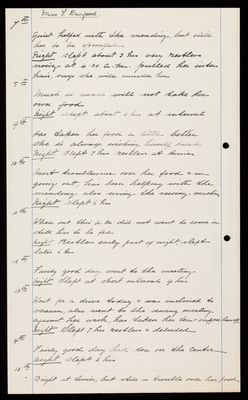 Miss E. Danford
7th
Quiet helped with the mending, but still
has to be
Night slept about 3 hrs very restless
noisy at 4 20 a.m. pulled her sister
hair, says she will murder her
8th
Much as usual will not take her
own food
Night slept about 5 hrs at intervals
9th
Has taken her food a little better
she is always wishing herself dead
Night slept 7 hrs restless at times
10th
Most troublesome over her food & in
going out, has been helping with the
mending also using the sewing machine
Night slept 6 hrs
11th
When out this a.m did not want to come in
still has to be fed
Night Restless early part of night slept
later 6 hrs
12th
Fairly good day went to the meeting
Night Slept at short intervals 4 hrs
13th
Went for a drive today & was inclined to
scream, also went to the sewing meeting
against her wish, has taken her tea &
Night Slept 7 hrs restless & deluded
14th
Fairly good day had tea on the centre
Night slept 6 hrs
15th
Bright at times, but still a trouble over her food